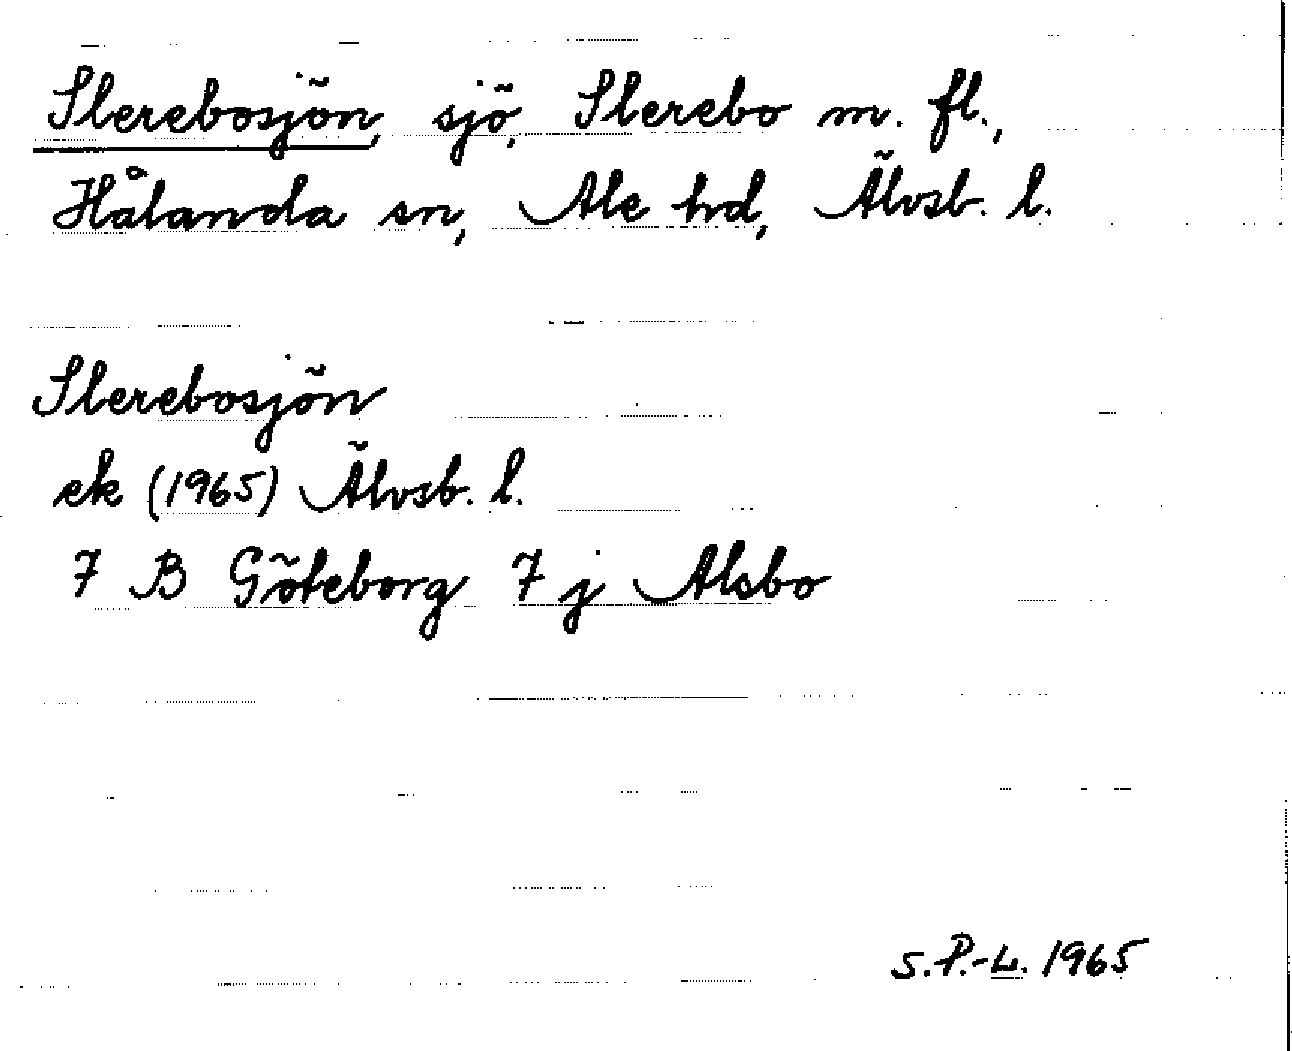 Slerebosjön, sjö, Slerebo m. fl.,
Hålanda sn, Ale hd, Älvsb. l.
Slerebosjön
ek (1965) Älvsb. l.
7 B Göteborg 7 j Alsbo
S.P.-L. 1965